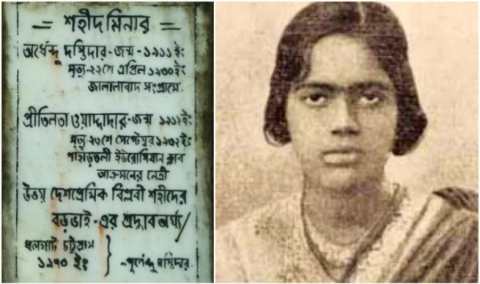 শহীদ মিনার
অর্ধেন্দু দস্তিদার - জন্ম - ১৯১১ ইং
মৃত্যু - ২২শে এপ্রিল ১৯৩০ ইং
জালালাবাদ সংগ্রামে
প্রীতিলতা ওয়াদ্দাদার - জন্ম ১৯১১ ইং
মৃত্যু - ২৩শে সেপ্টেম্বর ১৯৩২ ইং
পাহাড়তলী ইউরোপিয়ান ক্লাব
আক্রমনের নেত্রী
উভয় দেশপ্রেমিক বিপ্লবী শহীদের
বড়ভাই - এর শ্রদ্ধাঞ্জলী
ধলঘাট চট্টগ্রাম
১৯৭০ ইং
- পূর্ণেন্দু দস্তিদার